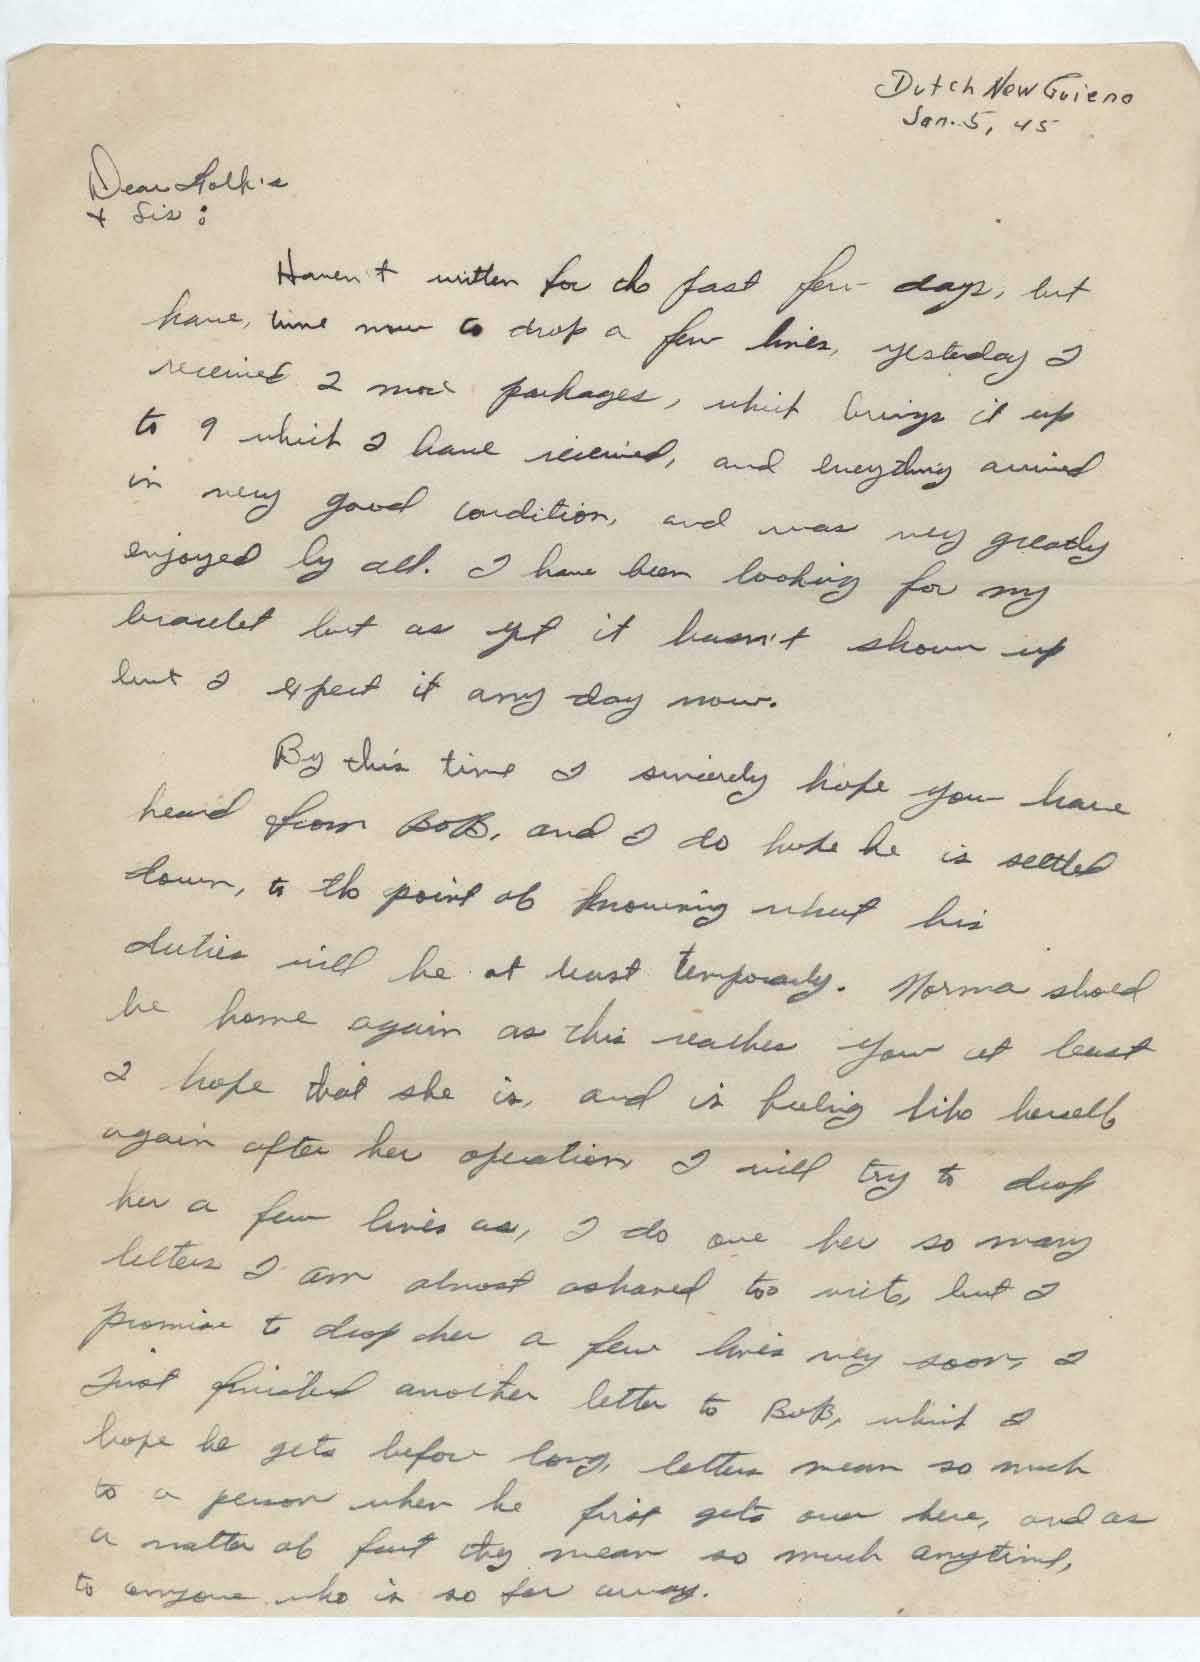 Dutch New Guiena
Jan. 5, 45
Dear Folk's
+ Sis:
Haven't written for the past few days, but
have, time now to drop a few lines, yesterday I
received 2 more packages, which brings it up
to 9 which I have received, and everything arrived
in very good condition, and was very greatly
enjoyed by all. I have been looking for my
bracelet but as yet it hasn't shown up
but I expect it any day now.
By this time I sincerely hope you have
heard from BoB, and I do hope he is settled
down, to the point of knowing what his
duties will be at least temporarly. Norma shoed
be home again as this reaches you at least
I hope that she is, and is feeling like herself
again after her operation I will try to drop
her a few lines as, I do owe her so many
letters I am almost ashamed too write, but I
promise to drop her a few lines very soon, I
just finished another letter to BoB, which I
hope he gets before long, letters mean so much
to a person when he first gets over here, and as
a matter of fact they mean so much anytime,
to anyone who is so far away.